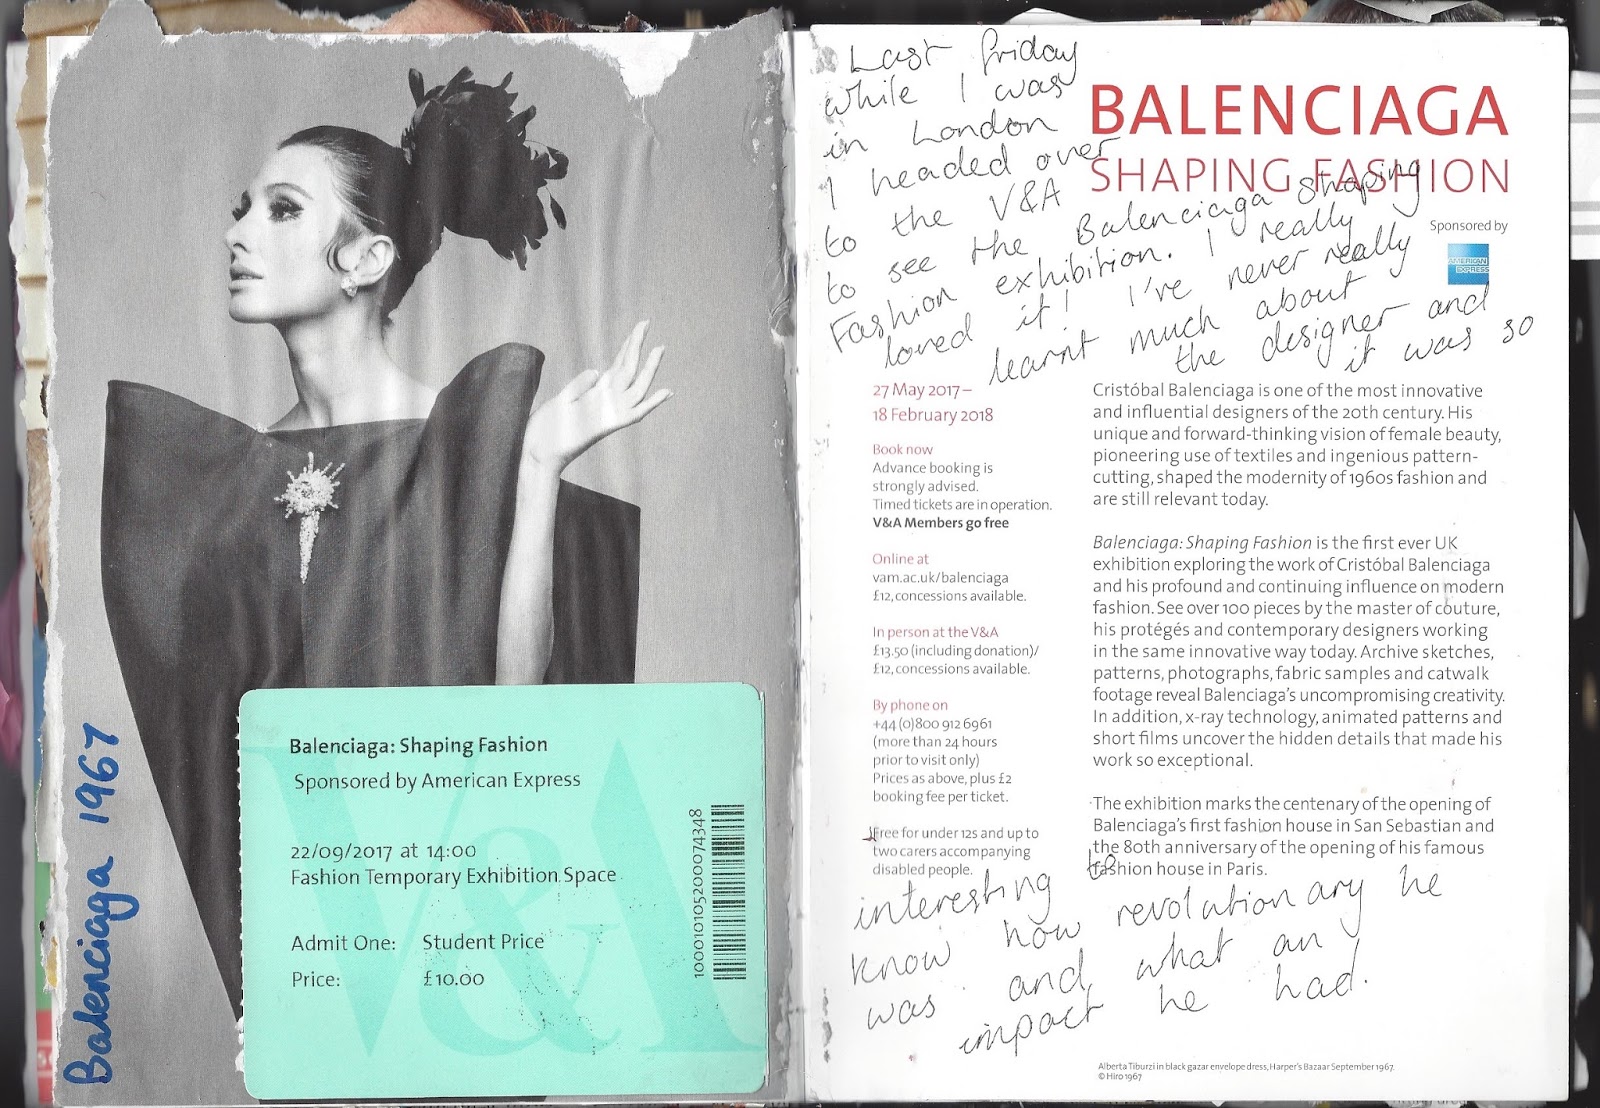 Balenciaga 1967
Balenciaga: Shaping Fashion
Sponsored by American Express
22/09/2017 at 14:00
Fashion Temporary Exhibition Space
Admit One: Student Price
Price: £10.00
V&A
100010105200074348
Last friday
while I was
in London
I headed over
to the V&A
to see the Balenciaga Shaping
Fashion exhibition. I really
loved it! I've never really
learnt much about
the designer and
it was so
BALENCIAGA
SHAPING FASHION
Sponsored by
AMERICAN
EXPRESS
27 May 2017 –
18 February 2018
Book now
Advance booking is
strongly advised.
Timed tickets are in operation.
V&A Members go free
Online at
vam.ac.uk/balenciaga
£12, concessions available.
In person at the V&A
£13.50 (including donation)/
£12, concessions available.
By phone on
+44 (0)800 912 6961
(more than 24 hours
prior to visit only)
Prices as above, plus £2
booking fee per ticket.
Free for under 12s and up to
two carers accompanying
disabled people.
Cristóbal Balenciaga is one of the most innovative
and influential designers of the 20th century. His
unique and forward-thinking vision of female beauty,
pioneering use of textiles and ingenious pattern-
cutting, shaped the modernity of 1960s fashion and
are still relevant today.
Balenciaga: Shaping Fashion is the first ever UK
exhibition exploring the work of Cristóbal Balenciaga
and his profound and continuing influence on modern
fashion. See over 100 pieces by the master of couture,
his protégés and contemporary designers working
in the same innovative way today. Archive sketches,
patterns, photographs, fabric samples and catwalk
footage reveal Balenciaga's uncompromising creativity.
In addition, x-ray technology, animated patterns and
short films uncover the hidden details that made his
work so exceptional.
The exhibition marks the centenary of the opening of
Balenciaga's first fashion house in San Sebastian and
the 80th anniversary of the opening of his famous
fashion house in Paris.
interesting to
know how revolutionary he
was and what an
impact he had.
Alberta Tiburzi in black gazar envelope dress, Harper's Bazaar September 1967.
© Hiro 1967